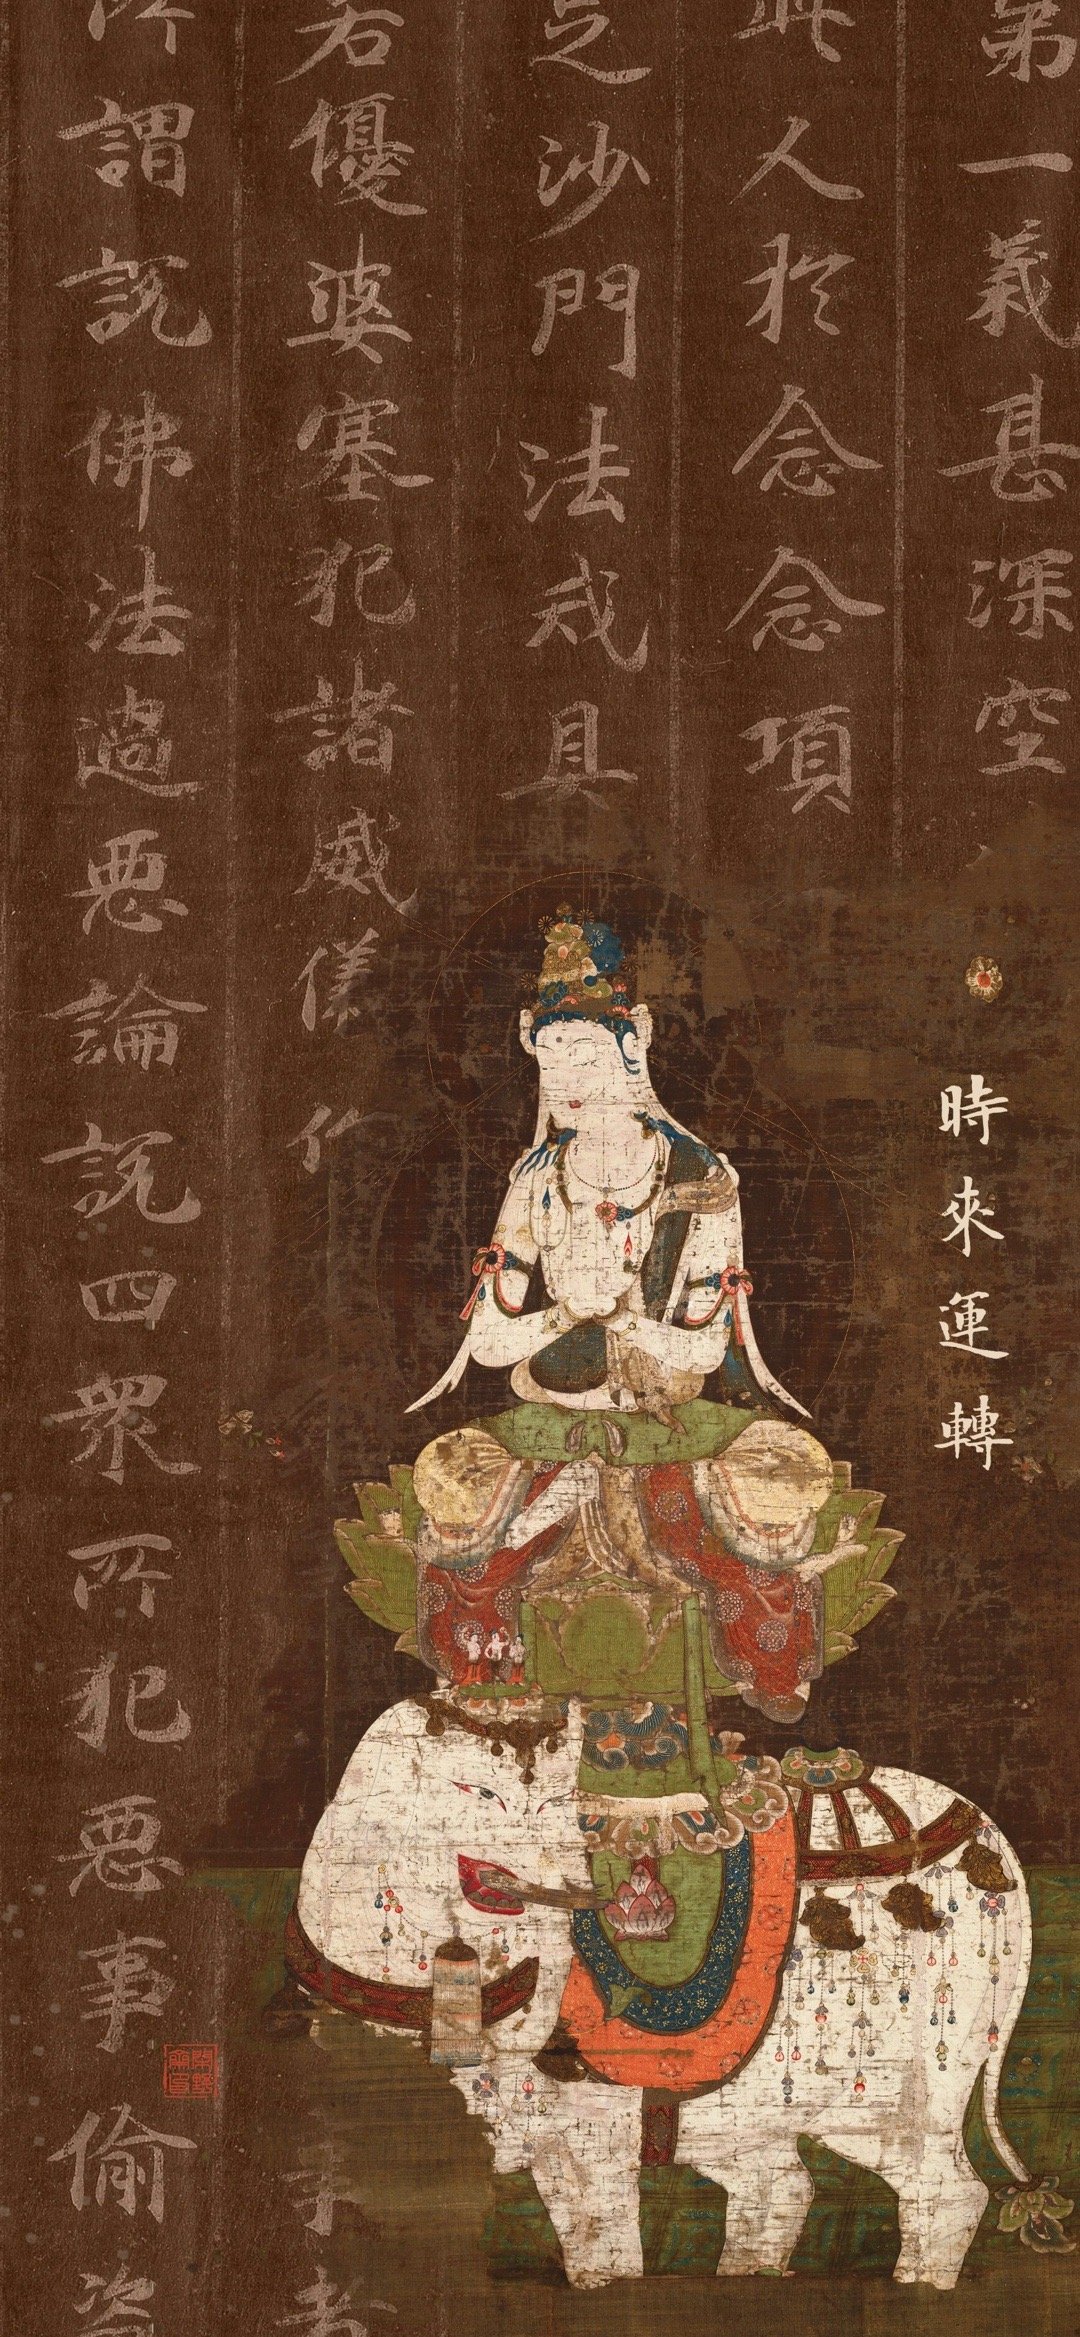 第一義甚深空
此人於念念項
足沙門法戒具
若優婆塞犯諸威儀作
所謂説佛法過惡論説四眾所犯惡事偷盜
時來運轉